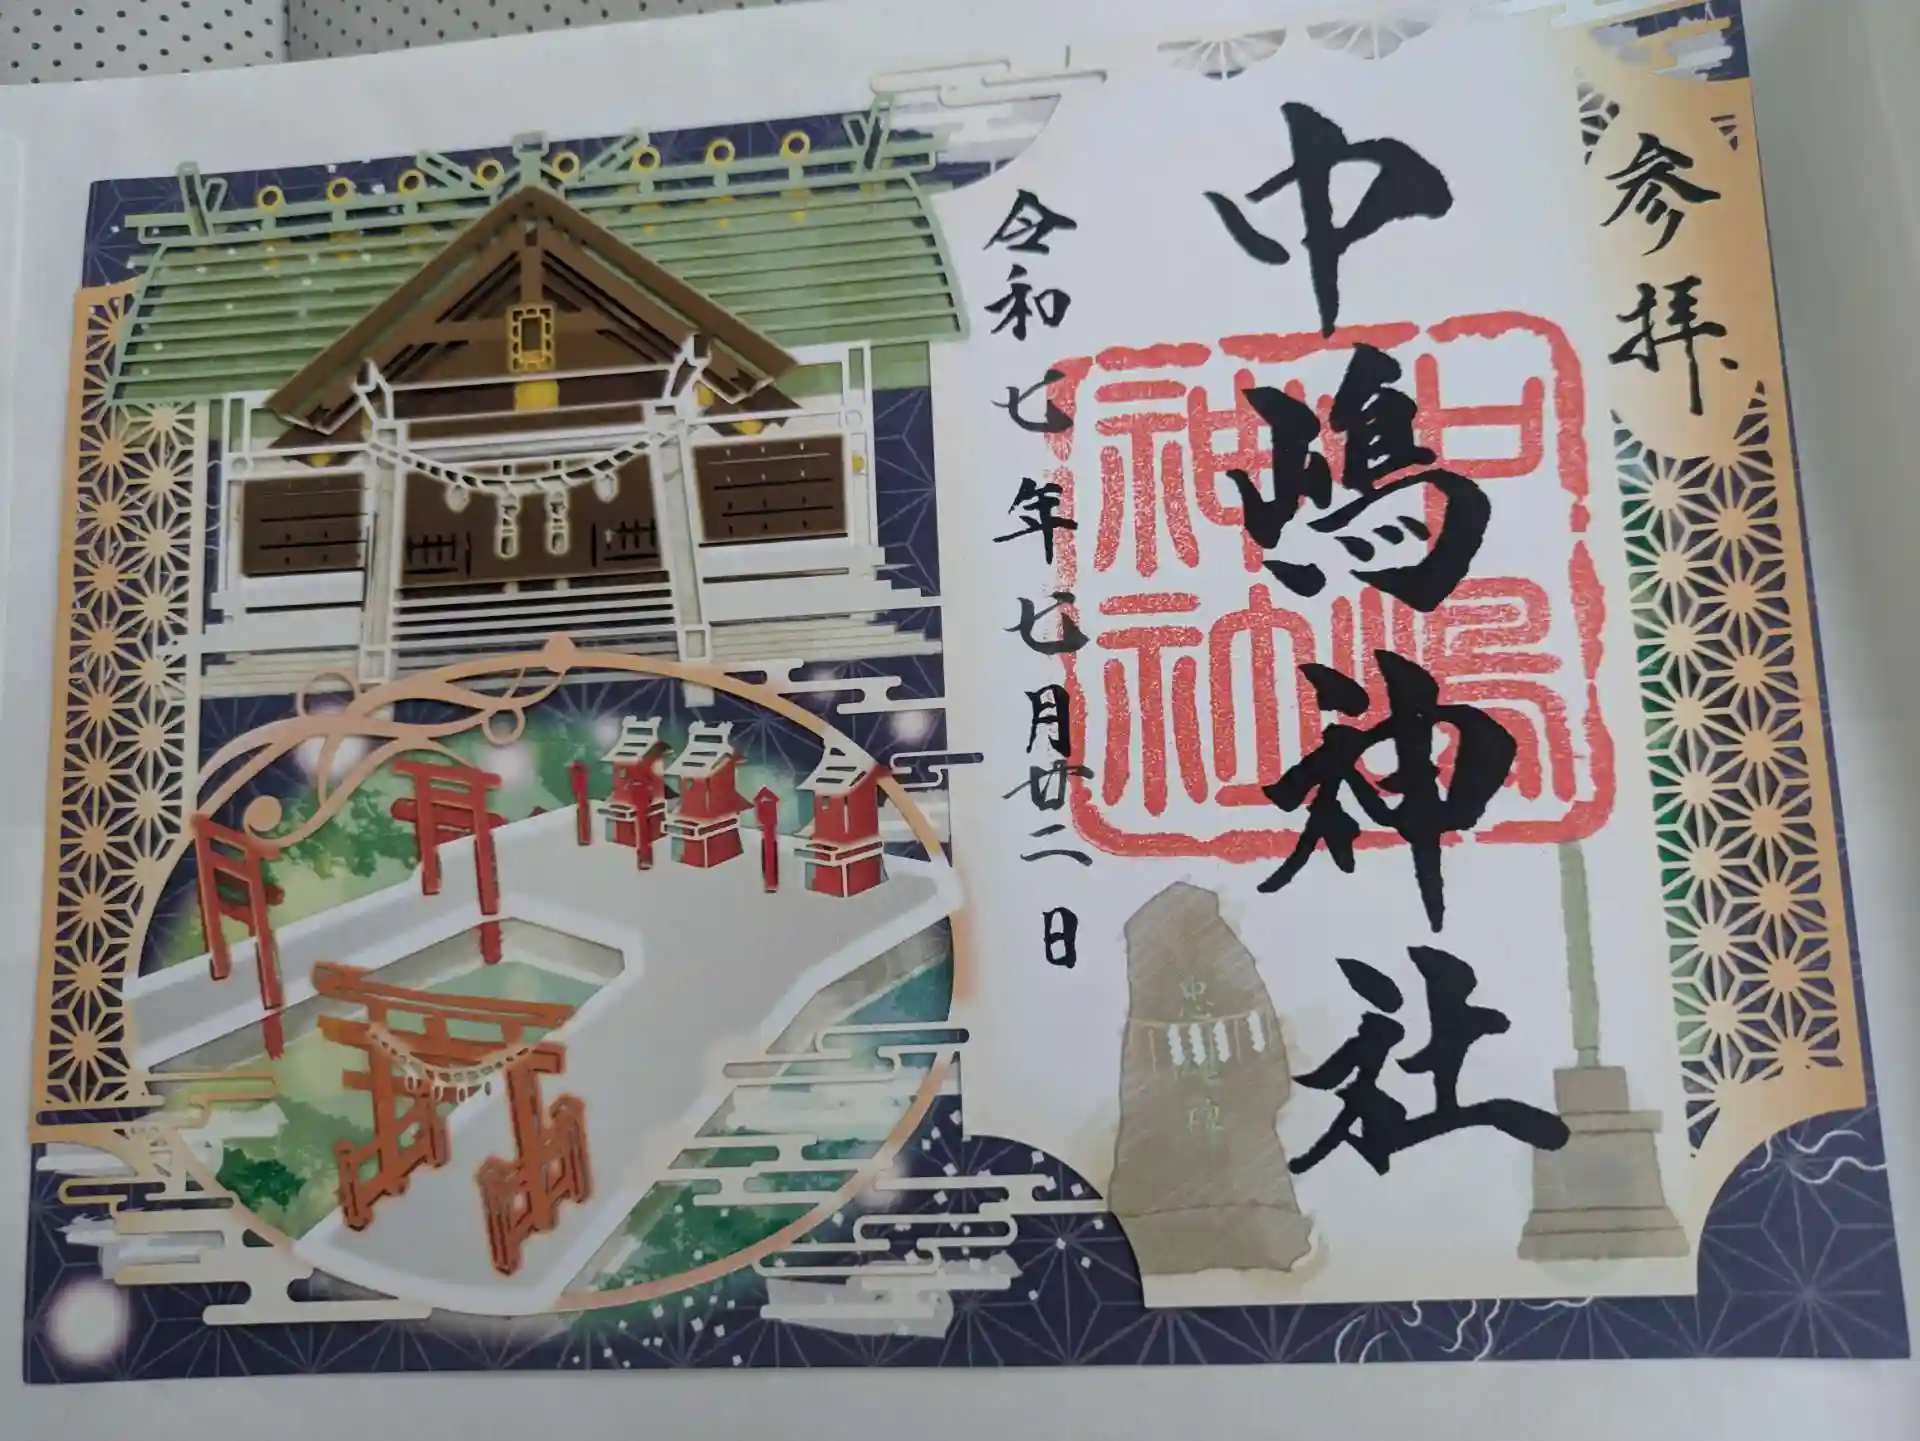 参拝
中嶋神社
中嶋
神社
令和七年七月廿二日
忠魂碑